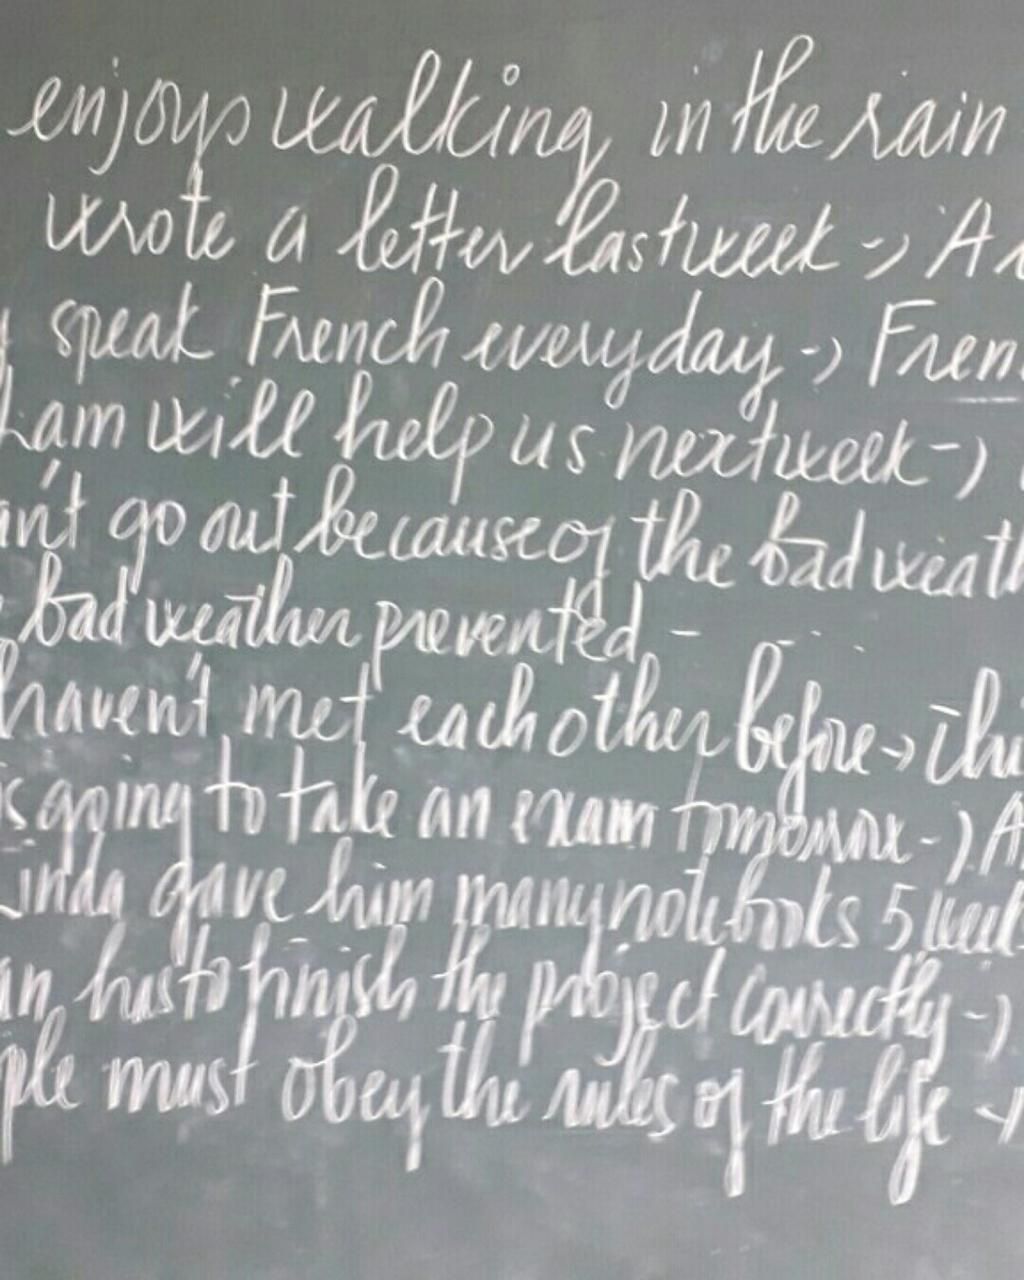 enjoys walking in the rain
wrote a letter last week -> A
speak French everyday -> Fren
ham will help us next week ->
an't go out because of the bad weath
bad weather prevented -
haven't met each other before -> Thi
is going to take an exam tomorrow -> A
Linda gave him many notebooks 5 week
an has to finish the project correctly ->
ple must obey the rules of the life ->